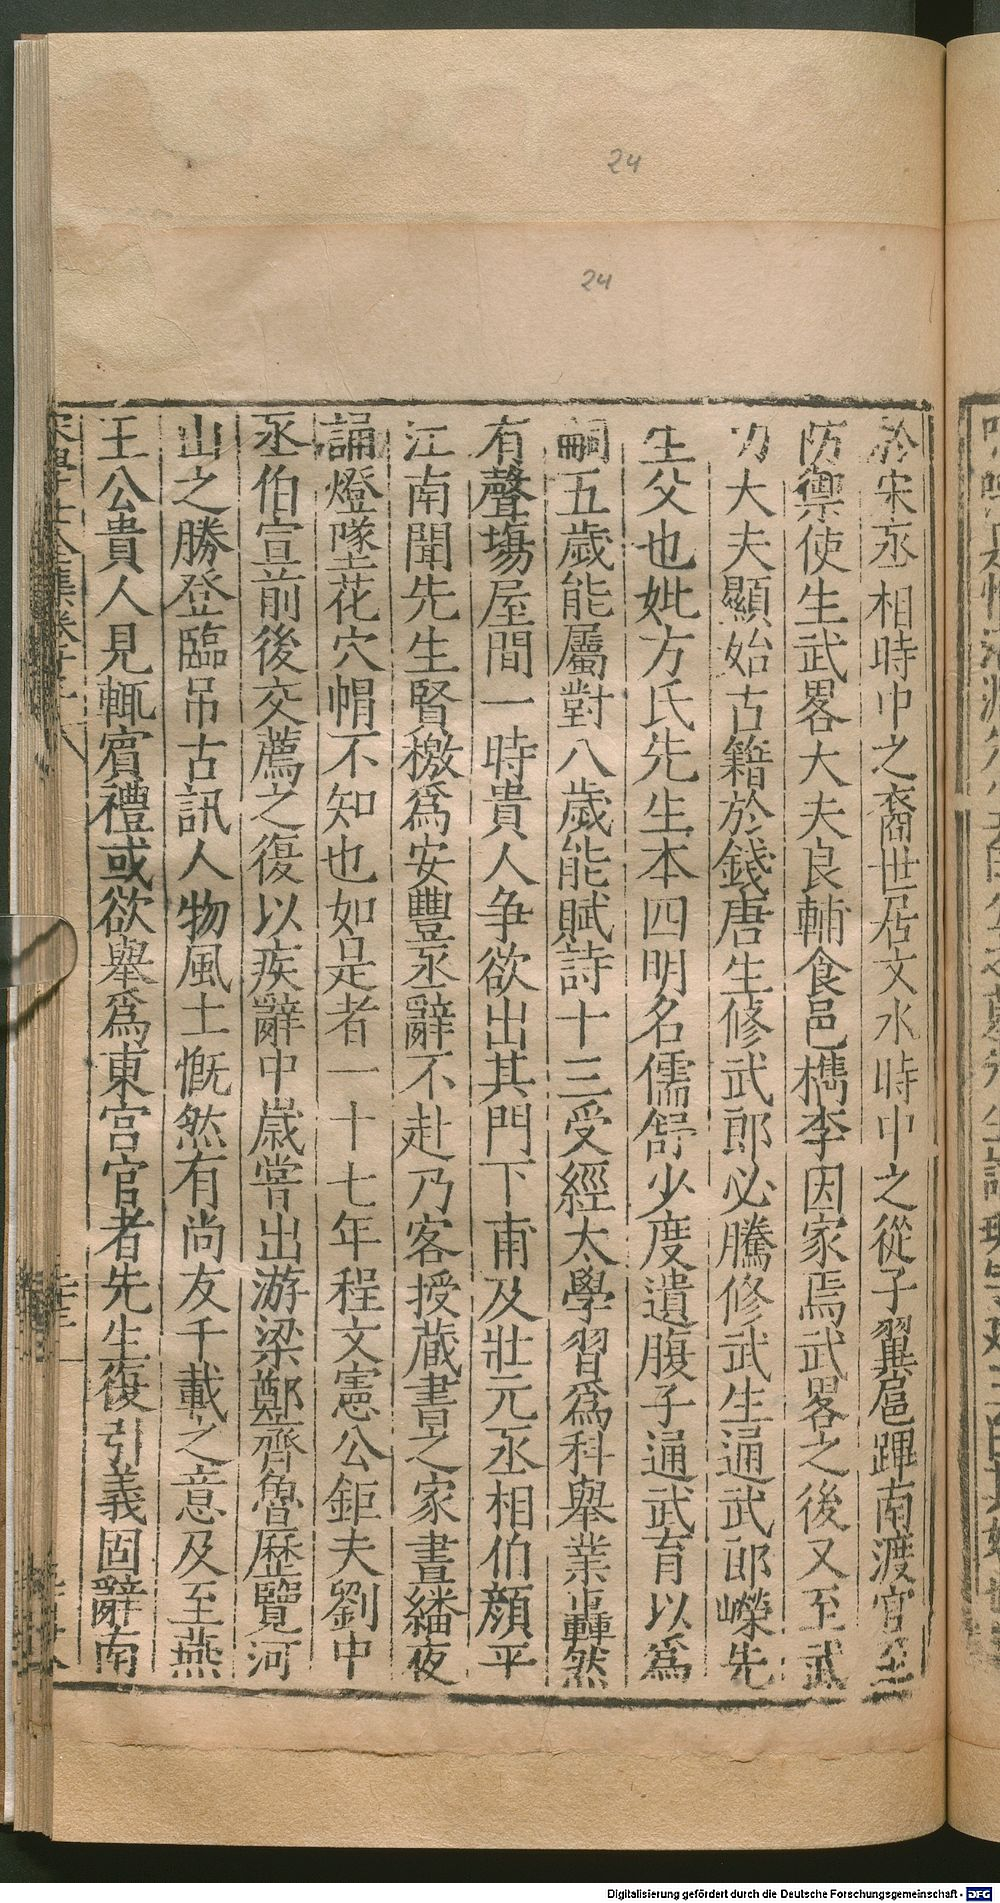 24
24
於宋丞相時中之裔世居文水時中之從子翼扈蹕南渡官至
防禦使生武畧大夫良輔食邑檇李因家焉武畧之後又至武
功大夫顯始占籍於錢唐生修武郎必騰修武生通武郎嶸先
生父也妣方氏先生本四明名儒舒少度遺腹子通武育以為
嗣五歲能屬對八歲能賦詩十三受經太學習為科舉業轟然
有聲塲屋間一時貴人争欲出其門下甫及壯元丞相伯顏平
江南聞先生賢檄為安豐丞辭不赴乃客授蔵書之家晝繙夜
誦燈墜花穴帽不知也如是者一十七年程文憲公鉅夫劉中
丞伯宣前後交薦之復以疾辭中嵗嘗出游梁鄭齊魯歷覽河
山之勝登臨吊古訊人物風土慨然有尚友千載之意及至燕
王公貴人見輒賓禮或欲舉為東宮官者先生復引義固辭南
Digitalisierung gefördert durch die Deutsche Forschungsgemeinschaft - DFG